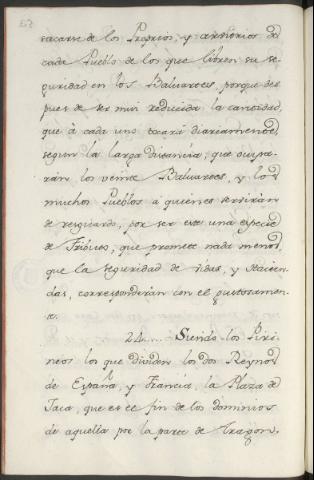 sacarse de los Proprios, y arvitrios de
cada Pueblo de los que libren su se-
guridad en los Baluartes, porque des
pues de ser mui reducida la cantidad,
que à cada uno tocará diariamente,
segun la larga distancia, que ocupa-
rán los veinte Baluartes, y los
muchos Pueblos a quienes servirán
de resguardo, por ser este una especie
de Tributo, que promete nada menos,
que la seguridad de vidas, y Hacien-
das, corresponderán con el gustosamen-
te.
24.... Siendo los Piri-
neos los que dividen los dos Reynos
de España, y Francia, la Plaza de
Jaca, que es el fin de los dominios
de aquella por la parte de Aragon,